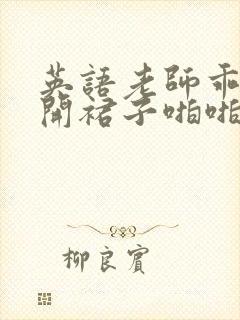 英語老師乖
開裙子啪啪
柳良賓